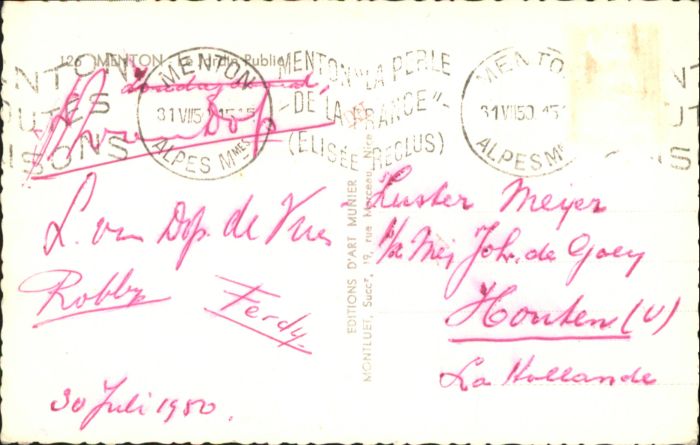 126 MENTON - Le Jardin Public
MENTON
31 VII 50 15 15
ALPES Mmes
MENTON "LA PERLE
DE LA FRANCE"
(ELISÉE RECLUS)
MENTON
31 VII 50 15
ALPES M
L. van Dop. de Vries
Robby Ferdy
30 Juli 1950.
EDITIONS D'ART MUNIER
MONTLUET, Succr, 19, rue Marceau, Nice
Zuster Meijer
Joh. de Goey
Houten (U)
La Hollande